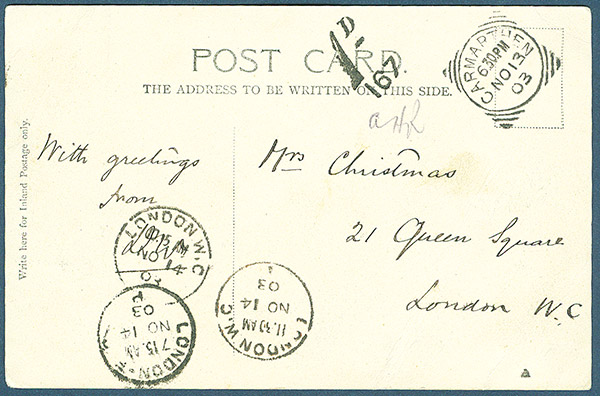 POST CARD.
THE ADDRESS TO BE WRITTEN ON THIS SIDE.
1D.
167
CARMARTHEN
6.30PM
NO 13
03
Write here for Inland Postage only.
With greetings
from
Mrs Christmas
21 Queen Square
London W.C
LONDON W.C
10.15 AM
NOV 14
03
LONDON W.C
11.30 AM
NO 14
03
LONDON
7.15.AM
NO 14
03